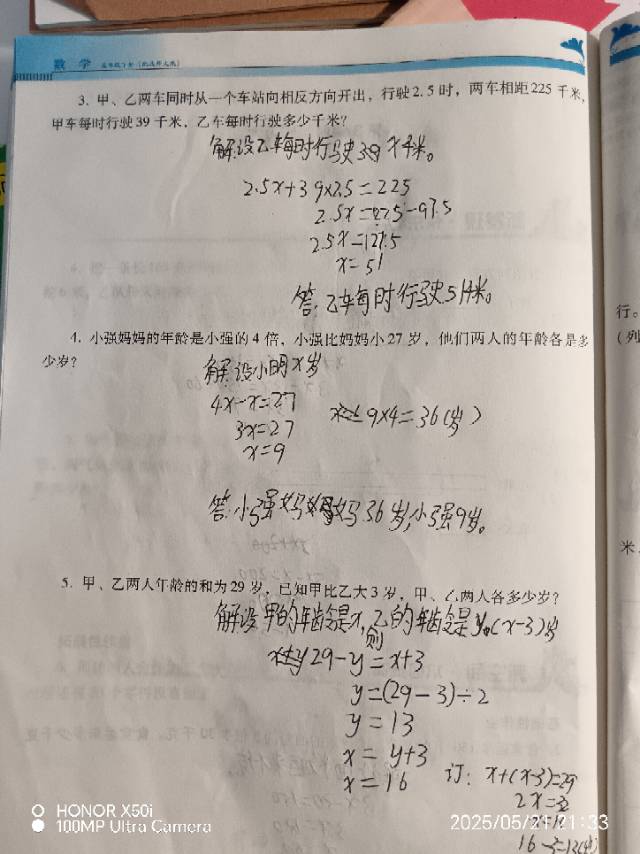 数学
3. 甲、乙两车同时从一个车站向相反方向开出，行驶2.5时，两车相距225千米，
甲车每时行驶39千米，乙车每时行驶多少千米？
解：设乙车每时行驶 x千米。
2.5x+39×2.5=225
2.5x=225-97.5
2.5x=127.5
x=51
答：乙车每时行驶51千米。
4. 小强妈妈的年龄是小强的4倍，小强比妈妈小27岁，他们两人的年龄各是多
少岁？
解：设小明x岁
4x-x=27
3x=27
x=9
9×4=36(岁)
答：小强妈妈 36岁，小强9岁。
5. 甲、乙两人年龄的和为29岁，已知甲比乙大3岁，甲、乙两人各多少岁？
解：设甲的年龄是x，则乙的年龄是y。(x-3)岁
29-y=x+3
y=(29-3)÷2
y=13
x=y+3
x=16
订：x+(x-3)=29
2x=32
x=16
16-3=13(岁)
行。
(列
米
HONOR X50i
100MP Ultra Camera
2025/05/21 21:33